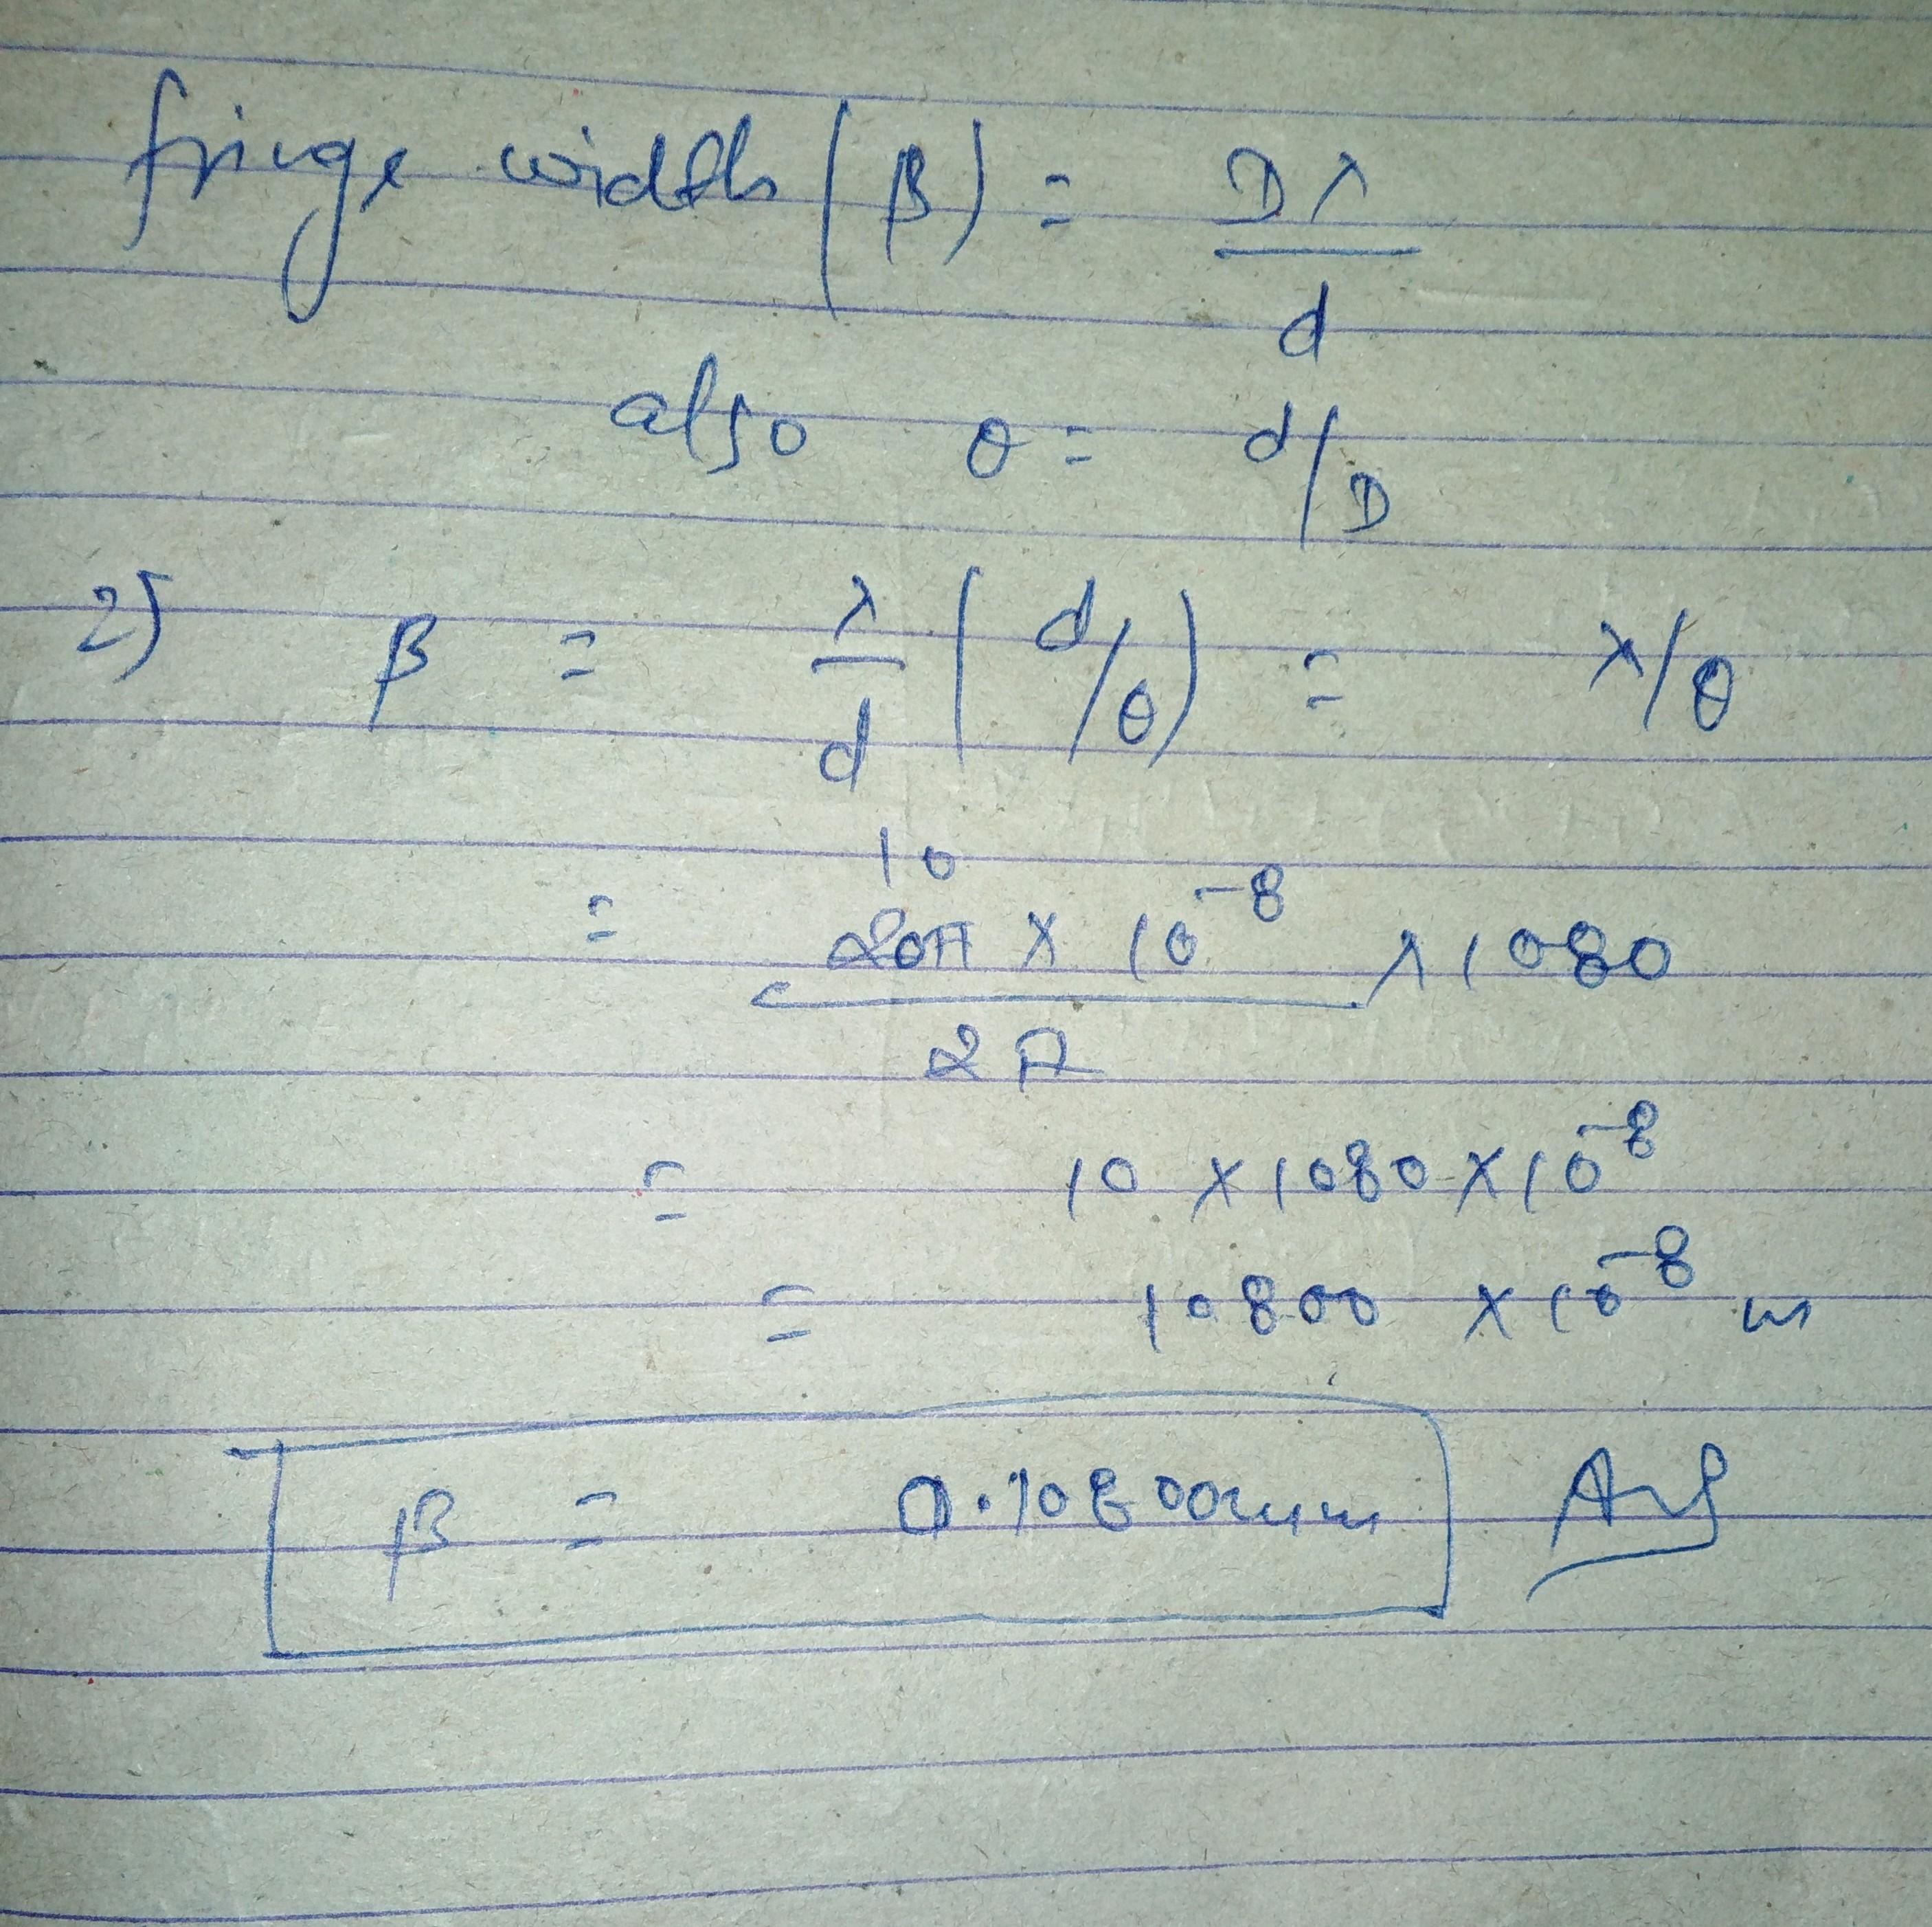 fringe width (β) = Dλ / d
also θ = d/D
⇒ β = λ/d (d/θ) = λ/θ
10
= 20π × 10⁻⁸ / 2π × 1080
= 10 × 1080 × 10⁻⁸
= 10800 × 10⁻⁸ m
β = 0.10800mm Ans